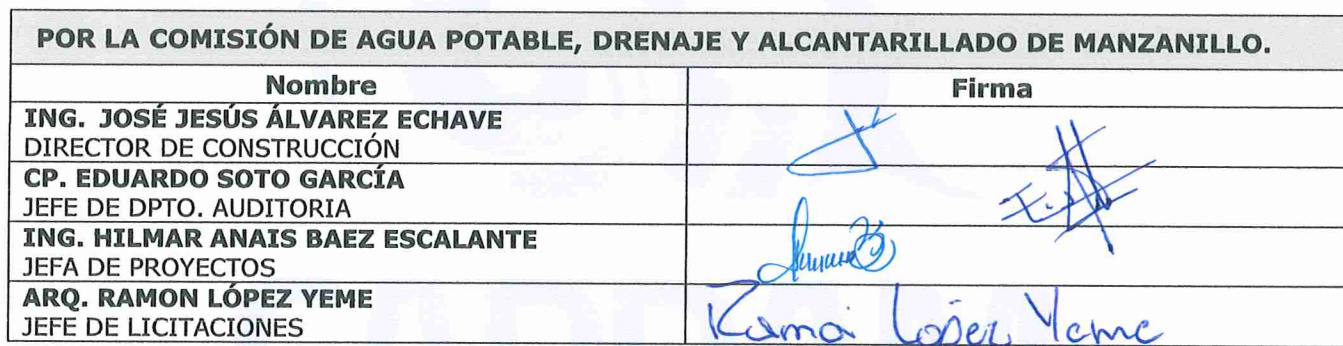 POR LA COMISIÓN DE AGUA POTABLE, DRENAJE Y ALCANTARILLADO DE MANZANILLO.
Nombre Firma
ING. JOSÉ JESÚS ÁLVAREZ ECHAVE
DIRECTOR DE CONSTRUCCIÓN
CP. EDUARDO SOTO GARCÍA
JEFE DE DPTO. AUDITORIA
ING. HILMAR ANAIS BAEZ ESCALANTE
JEFA DE PROYECTOS
ARQ. RAMON LÓPEZ YEME
JEFE DE LICITACIONES
Ramon López Yeme